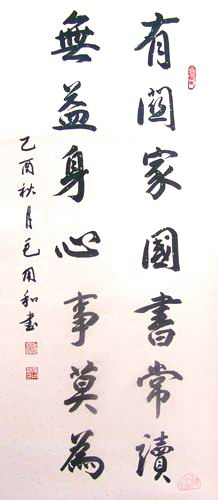 有關家國書常讀
無益身心事莫為
乙酉秋月包用和書